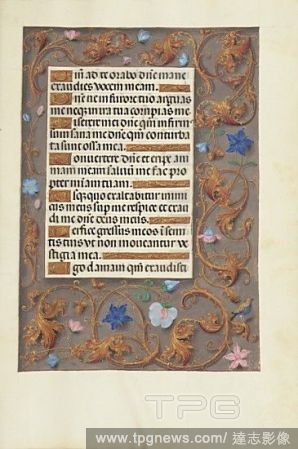 m ad te orabo dñe mane
exaudies vocem meam.
ñe ne in furore tuo arguas
me neqʒ in ira tua corripias me
iserere mei dñe qm̃ infir
mus sum sana me dñe qm̃ conturba
ta sunt ossa mea.
onvertere dñe et eripe ani
mam meam salvũ me fac pro
pter mĩam tuam.
usqʒ quo exaltabitur inimi
cus meus sup me respice et exau
di me dñe deus meus.
erfice gressus meos ĩ semi
tis tuis vt non moveantur ve
stigia mea.
go clamavi qm̃ exaudisti
TPG
www.tpgnews.com / 達志影像